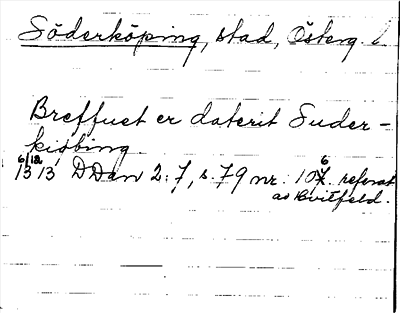 Söderköping, stad, Österg. l
Breffuet er daterit Suder-
kiøbing.
6/12
13 13 DDan 2:7, s. 79 nr. 106. referat
av Hvitfeld.